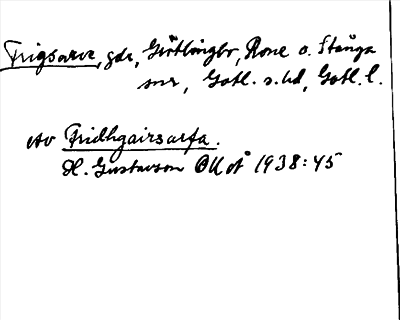 Frigsarve, gdr, Götlingbo, Rone o. Stånga
snr, Gotl. s. hd, Gotl. l.
Av Fridhgairsarfa.
H. Gustavson OUÅ 1938:45